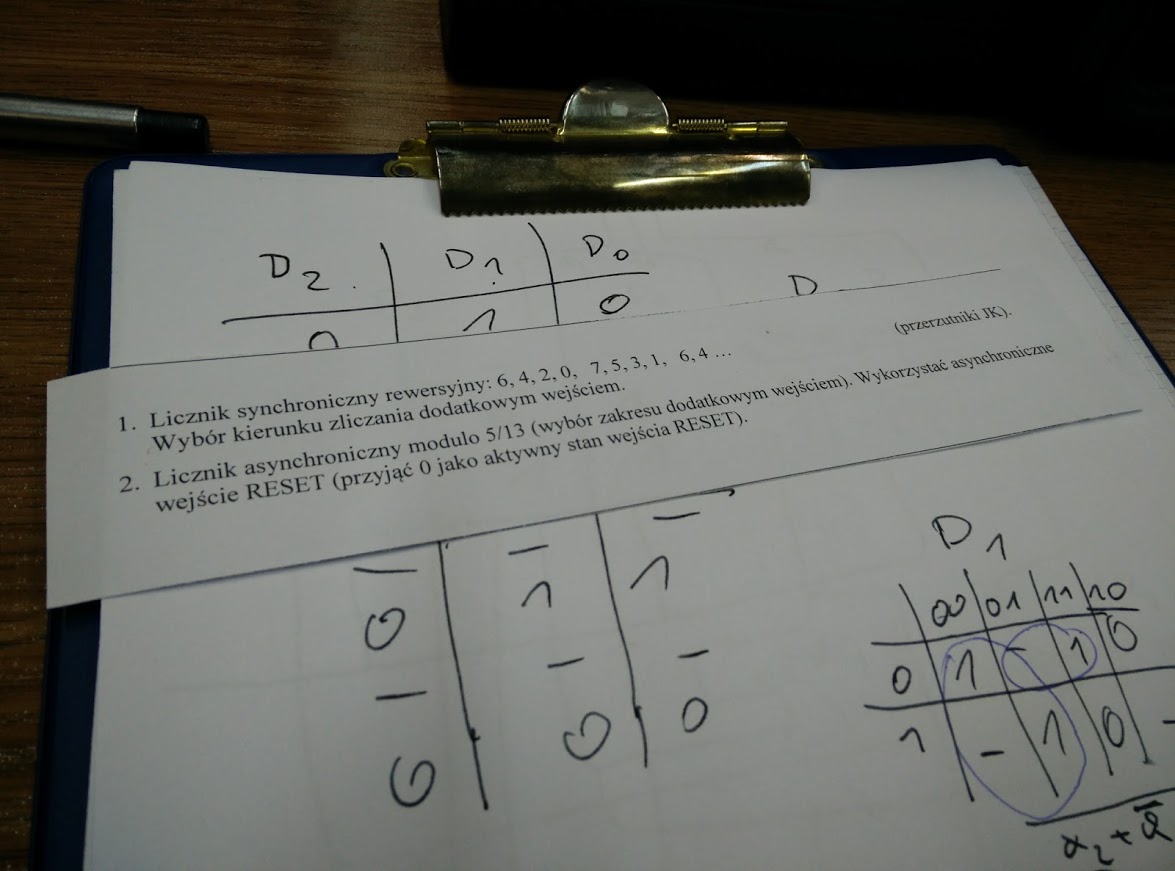 D2 D1 D0
0 1 0
D
(przerzutniki JK).
1. Licznik synchroniczny rewersyjny: 6, 4, 2, 0, 7, 5, 3, 1, 6, 4 ...
Wybór kierunku zliczania dodatkowym wejściem.
2. Licznik asynchroniczny modulo 5/13 (wybór zakresu dodatkowym wejściem). Wykorzystać asynchroniczne
wejście RESET (przyjąć 0 jako aktywny stan wejścia RESET).
– – –
0 1 1
– – –
0 0 0
D1
00 01 11 10
0 1 – 1 0
1 – 1 0 –